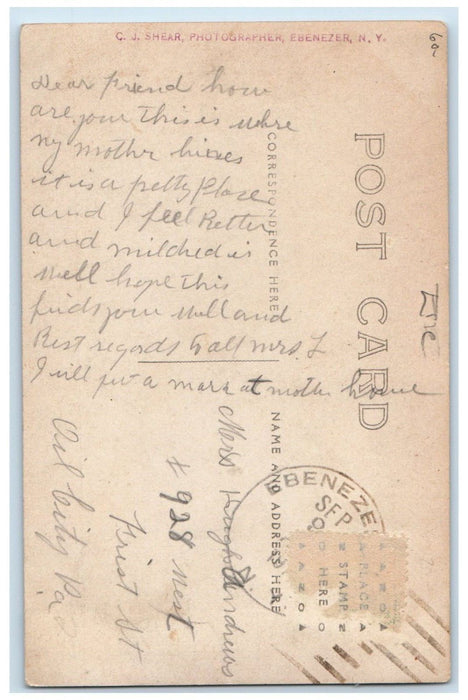 C. J. SHEAR, PHOTOGRAPHER, EBENEZER, N. Y.
60
Dear Friend how
are you This is where
my mother lives
it is a pretty Place
and I feel Better
and mildred is
well hope this
finds you well and
Best regards to all Mrs. L
I will put a mark at mother home
POST CARD
CORRESPONDENCE HERE
NAME AND ADDRESS HERE
EBENEZER
SEP
PLACE
STAMP
HERE
Mrs Hugh Andrews
# 928 West
First St
Oil City Pa